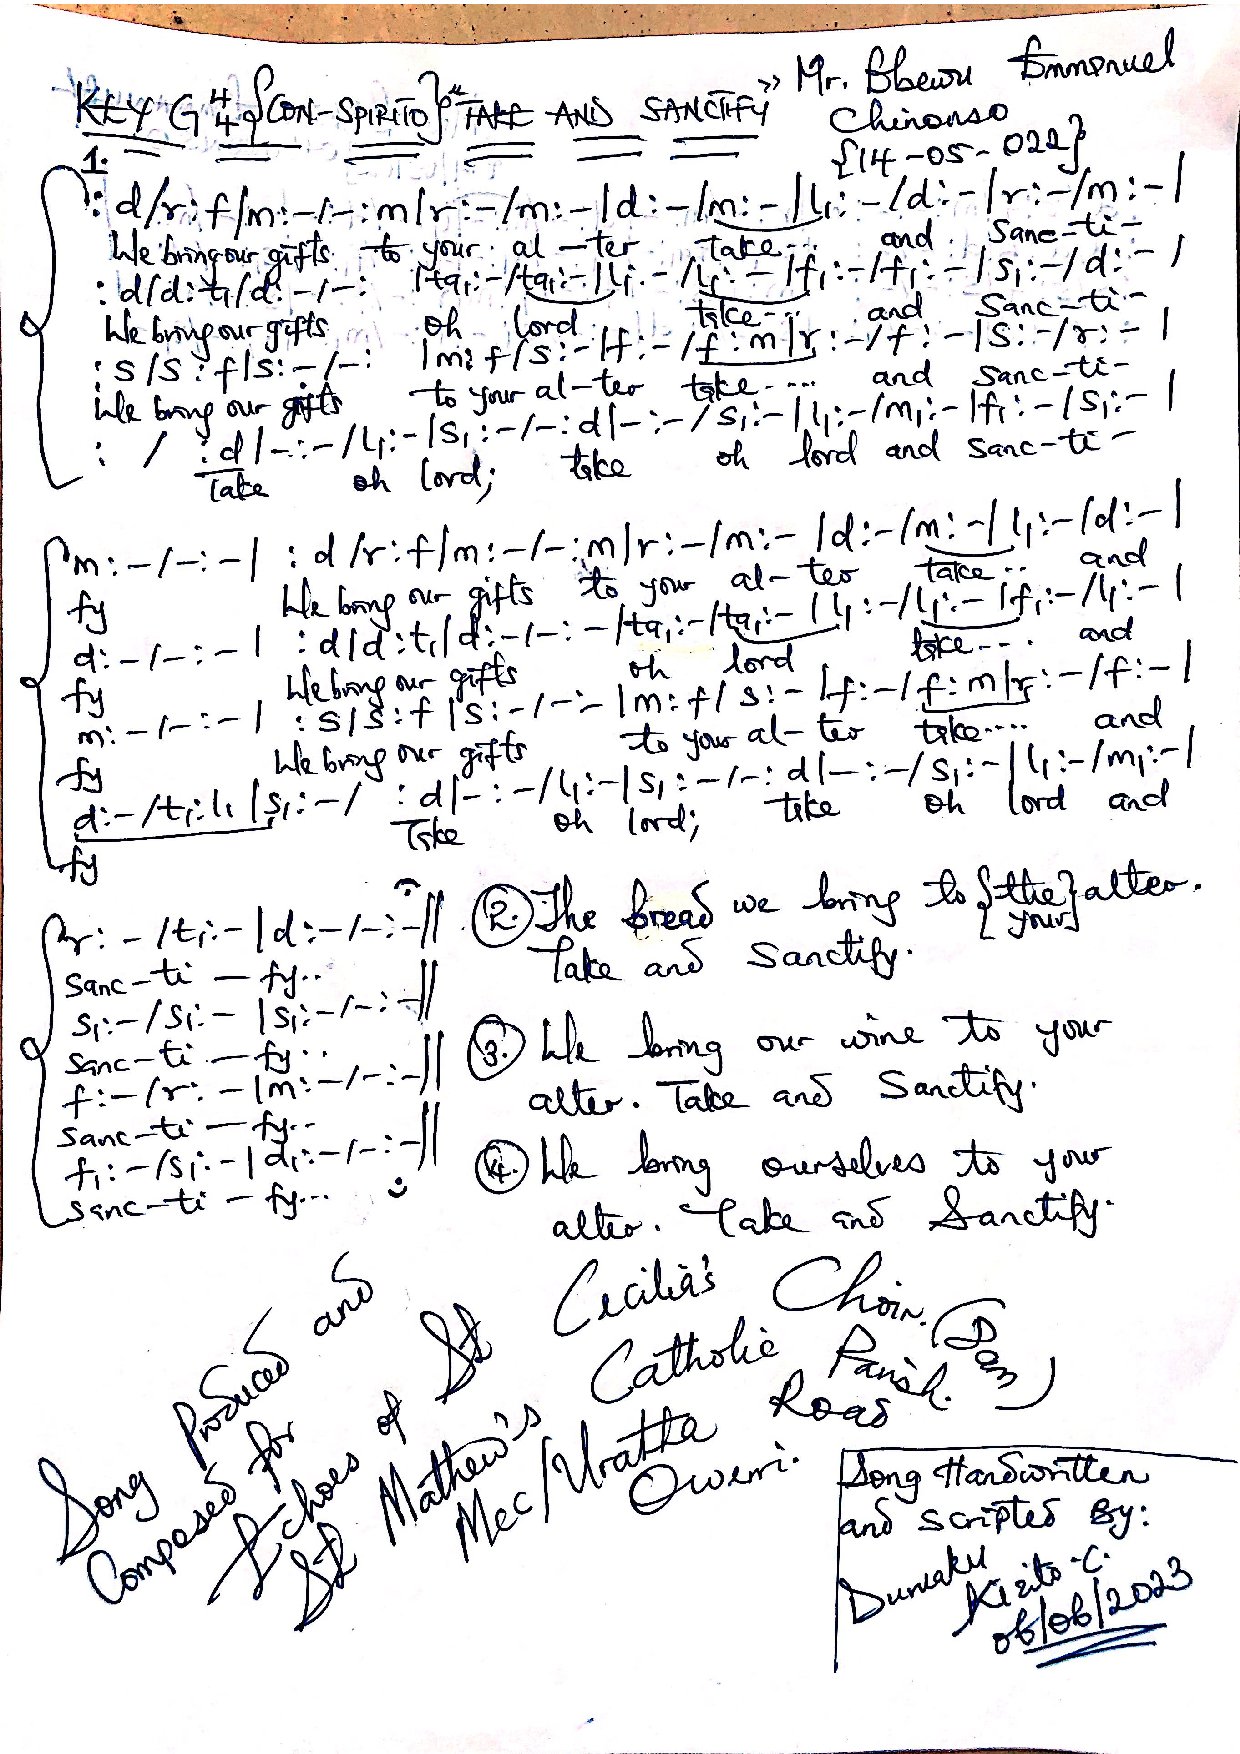 KEY G 4/4 {CON-SPIRITO} "TAKE AND SANCTIFY" Mr. Emmanuel
Chinonso
{14-05-022}
1.
: d/r: f/m: -/-: m|r: -/m: -|d: -/m: -|l₁: -/d: -|r: -/m: -|
We bring our gifts to your al-ter take... and Sanc-ti-
: d/d: t₁/d: -/-: |ta₁: -/ta₁: -|l₁: -/l₁: -|f₁: -/f₁: -|s₁: -/d: -|
We bring our gifts oh lord take... and Sanc-ti-
: s/s: f|s: -/-: |m: f/s: -|f: -/f: m|r: -/f: -|s: -/r: -|
We bring our gifts to your al-ter take.... and Sanc-ti-
: / : d|-: -/l₁: -|s₁: -/-: d|-: -/s₁: -|l₁: -/m₁: -|f₁: -|s₁: -|
Take oh lord; take oh lord and Sanc-ti-
m: -/-: -| : d/r: f|m: -/-: m|r: -/m: -|d: -/m: -|l₁: -/d: -|
fy We bring our gifts to your al-ter take.. and
d: -/-: -| : d|d: t₁|d: -/-: -|ta₁: -/ta₁: -|l₁: -/l₁: -|f₁: -/l₁: -|
fy We bring our gifts oh lord take.... and
m: -/-: -| : s|s: f|s: -/-: -|m: f/s: -|f: -/f: m|r: -/f: -|
fy We bring our gifts to your al-ter take.... and
d: -/t₁: l₁|s₁: -/ : d|-: -/l₁: -|s₁: -/-: d|-: -/s₁: -|l₁: -/m₁: -|
fy Take oh lord; take oh lord and
r: -/t₁: -|d: -/-: -||
Sanc-ti-fy..
s₁: -/s₁: -|s₁: -/-: -||
Sanc-ti-fy..
f: -/r: -|m: -/-: -||
Sanc-ti-fy...
f₁: -/s₁: -|d₁: -/-: -||
Sanc-ti-fy...
2. The bread we bring to {the} alter.
{your}
Take and Sanctify.
3. We bring our wine to your
alter. Take and Sanctify.
4. We bring ourselves to your
alter. Take and Sanctify.
Song Produced and
Composed for
Echoes of St Cecilia's Choir.
St Mathew's Catholic Parish.
Mec/Uratta Road
Owerri.
Song Handwritten
and Scripted By:
Kizito .C.
06/06/2023